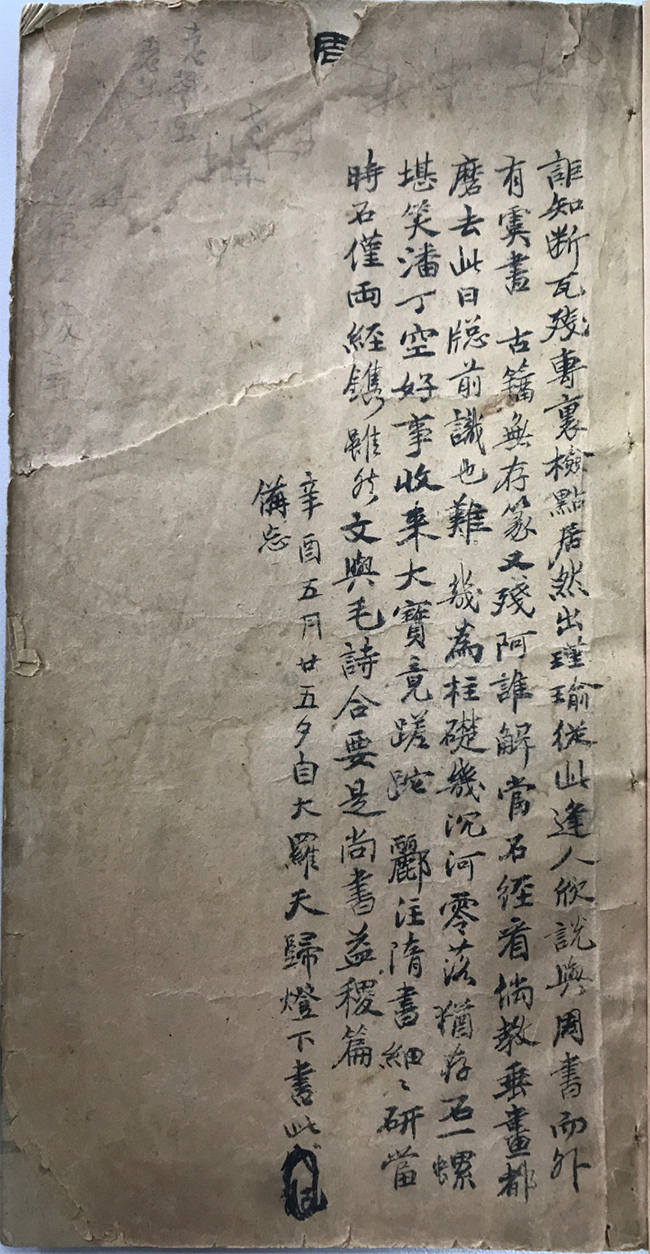 詎知断瓦殘專裏檢點居然出瑾瑜従此逢人欣説與周書而外
有虞書 古籀無存篆又殘阿誰解當石經看倘教垂畫都
磨去此日牕前識也難 幾為柱礎幾沉河零落猶存石一螺
堪笑潘丁空好事收来大寶竟蹉跎 酈注隋書細〻研當
時石僅兩經鐫雖然文與毛詩合要是尚書益稷篇
辛酉五月廿五夕自大羅天歸燈下書此
備忘